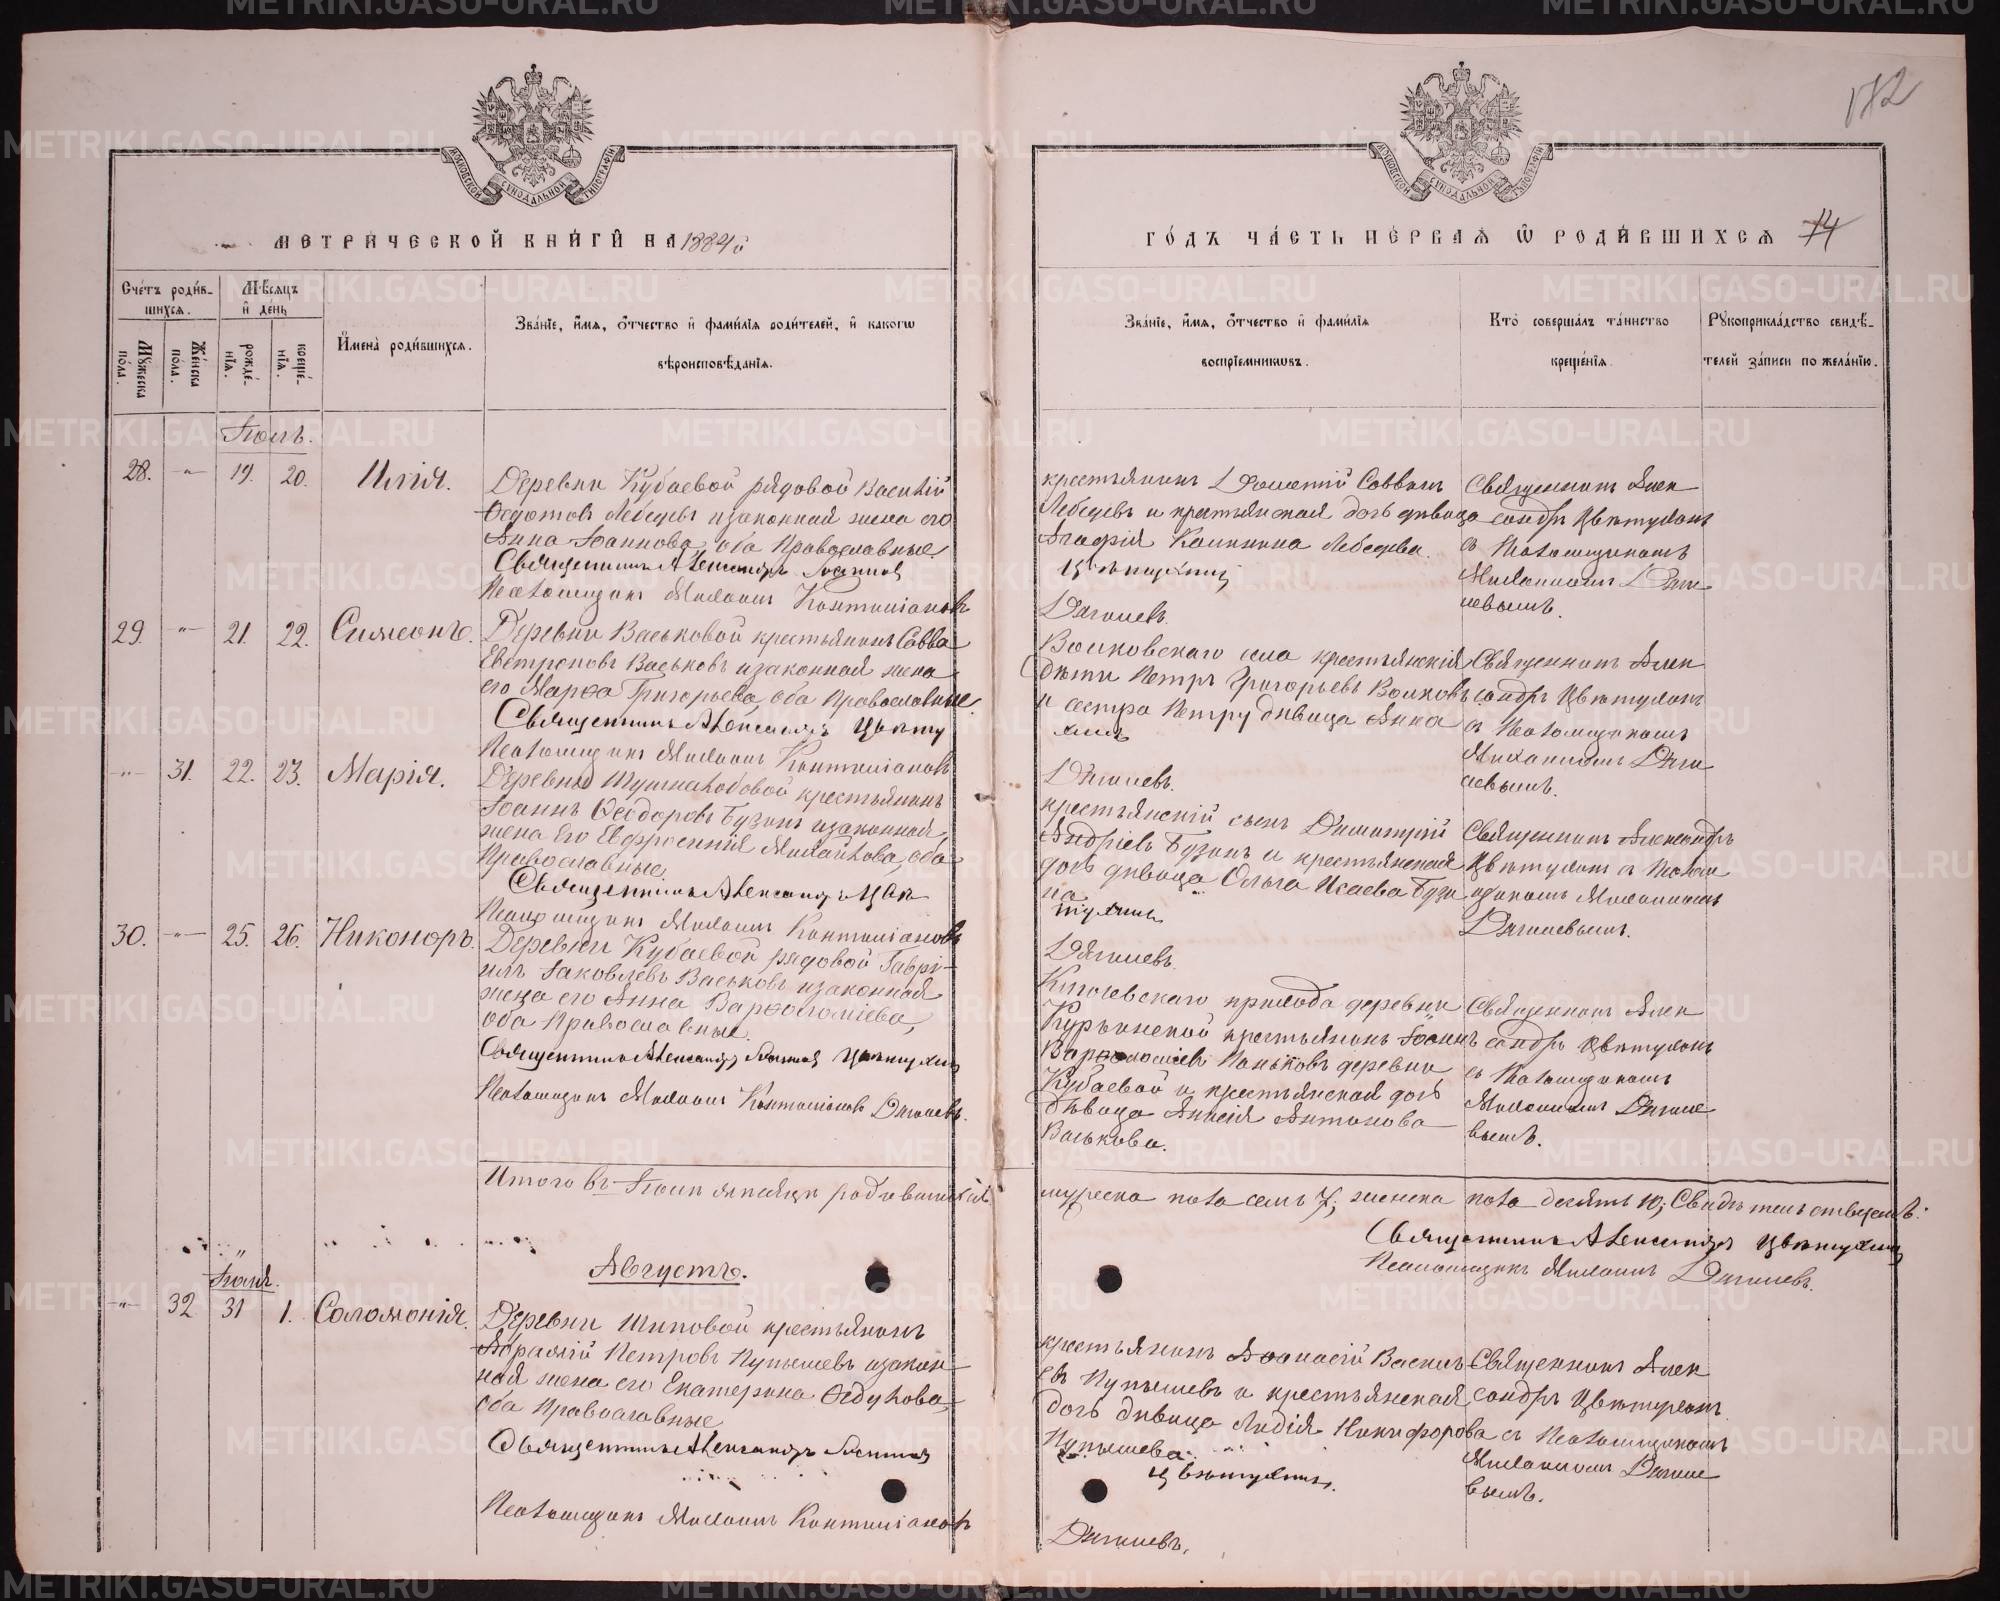 172
МОСКОВСКОЙ СѴНОДАЛЬНОЙ ТИПОГРАФІИ
МОСКОВСКОЙ СѴНОДАЛЬНОЙ ТИПОГРАФІИ
МЕТРИЧЕСКОЙ КНИГИ НА 1884й
ГОДЪ ЧАСТЬ ПЕРВАЯ Ѡ РОДИВШИХСЯ 74
Счетъ родив-
шихся.
Мѣсяцъ
и день
Мужеска
пола.
Женска
пола.
рожде-
нія.
креще-
нія.
Имена родившихся.
Званіе, имя, отчество и фамилія родителей, и какогѡ
вѣроисповѣданія.
Званіе, имя, отчество и фамилія
воспріемниковъ.
Кто совершалъ таинство
крещенія.
Рукоприкладство свидѣ-
телей записи по желанію.
Іюль.
28. -"- 19. 20. Илія.
Деревни Кубаевой рядовой Василій
Ѳедотовъ Лебедевъ и законная жена его
Анна Іоаннова, оба Православные
Священникъ Александръ Іоанновъ
Псаломщикъ Михаилъ Контиліановъ
крестьянинъ Дометій Саввинъ
Лебедевъ и крестьянская дочь дѣвица
Агафія Калинина Лебедева.
Цвѣтухинъ
Дягилевъ.
Священникъ Алек
сандръ Цвѣтухинъ
съ Псаломщикомъ
Михаиломъ Дяги
левымъ.
29. -"- 21. 22. Симеонъ.
Деревни Васьковой крестьянинъ Савва
Евтроповъ Васьковъ и законная жена
его Марѳа Григорьева, оба Православные.
Священникъ Александръ Цвѣту
Псаломщикъ Михаилъ Контиліановъ
Волковскаго села крестьянскія
дѣти Петръ Григорьевъ Волковъ
и сестра Петру дѣвица Анна
хинъ
Дягилевъ.
Священникъ Алек
сандръ Цвѣтухинъ
съ Псаломщикомъ
Михаиломъ Дяги
левымъ.
-"- 31. 22. 23. Марія.
крестьянинъ
Іоаннъ Ѳеодоровъ Бузинъ и законная
жена его Евфросинія Михайлова, оба
Православные.
Священникъ Александръ Цвѣ
Псаломщикъ Михаилъ Контиліановъ
крестьянскій сынъ Димитрій
Андріевъ Бузинъ и крестьянская
дочь дѣвица Ольга Исаева Бузи
на
тухинъ
Дягилевъ.
Священникъ Александръ
Цвѣтухинъ съ Псалом
щикомъ Михаиломъ
Дягилевымъ.
30. -"- 25. 26. Никоноръ.
Деревни Кубаевой рядовой Гаврі-
илъ Іаковлевъ Васьковъ и законная
жена его Анна Варѳоломіева,
оба Православные.
Священникъ Александръ Іоанновъ Цвѣтухинъ
Псаломщикъ Михаилъ Контиліановъ Дягилевъ.
прихода деревни
Курьинской крестьянинъ Іоаннъ
Варѳоломіевъ Паньковъ деревни
Кубаевой и крестьянская дочь
дѣвица Анисія Антонова
Васькова.
Священникъ Алек
сандръ Цвѣтухинъ
съ Псаломщикомъ
Михаиломъ Дягиле
вымъ.
Итого въ Іюлѣ мѣсяцѣ родившихся
мужеска пола семь 7, женска пола десять 10, Свидѣтельствуемъ:
Священникъ Александръ Цвѣтухинъ
Псаломщикъ Михаилъ Дягилевъ.
Августъ.
Іюля.
-"- 32 31 1. Соломонія.
Деревни Шиповой крестьянинъ
Петровъ Пупышевъ и закон
ная жена его Екатерина Ѳедулова,
оба Православные
Священникъ Александръ Іоанновъ
Псаломщикъ Михаилъ Контиліановъ
крестьянинъ Аѳанасій Василь
евъ Пупышевъ и крестьянская
дочь дѣвица Лидія Никифорова
Пупышева.
Цвѣтухинъ.
Дягилевъ.
Священникъ Алек
сандръ Цвѣтухинъ
съ Псаломщикомъ
Михаиломъ Дягиле
вымъ.
METRIKI.GASO-URAL.RU